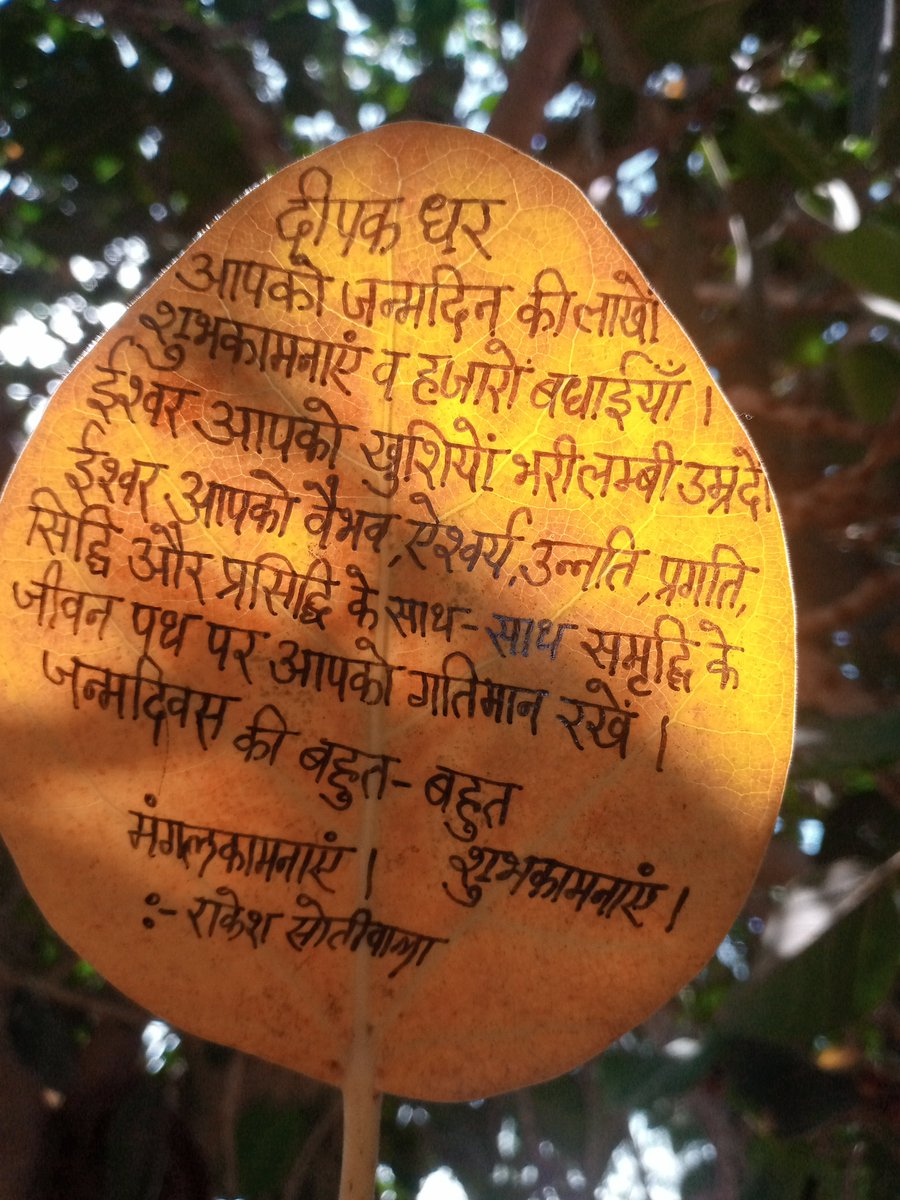 दीपक धर
आपको जन्मदिन की लाखों
शुभकामनाएं व हजारों बधाईयाँ ।
ईश्वर आपको खुशियों भरी लम्बी उम्र दे
ईश्वर आपको वैभव, ऐश्वर्य, उन्नति, प्रगति,
सिद्धि और प्रसिद्धि के साथ-साथ समृद्धि के
जीवन पथ पर आपको गतिमान रखें ।
जन्मदिवस की बहुत-बहुत
मंगलकामनाएं । शुभकामनाएं ।
:- राकेश सोतीवाला